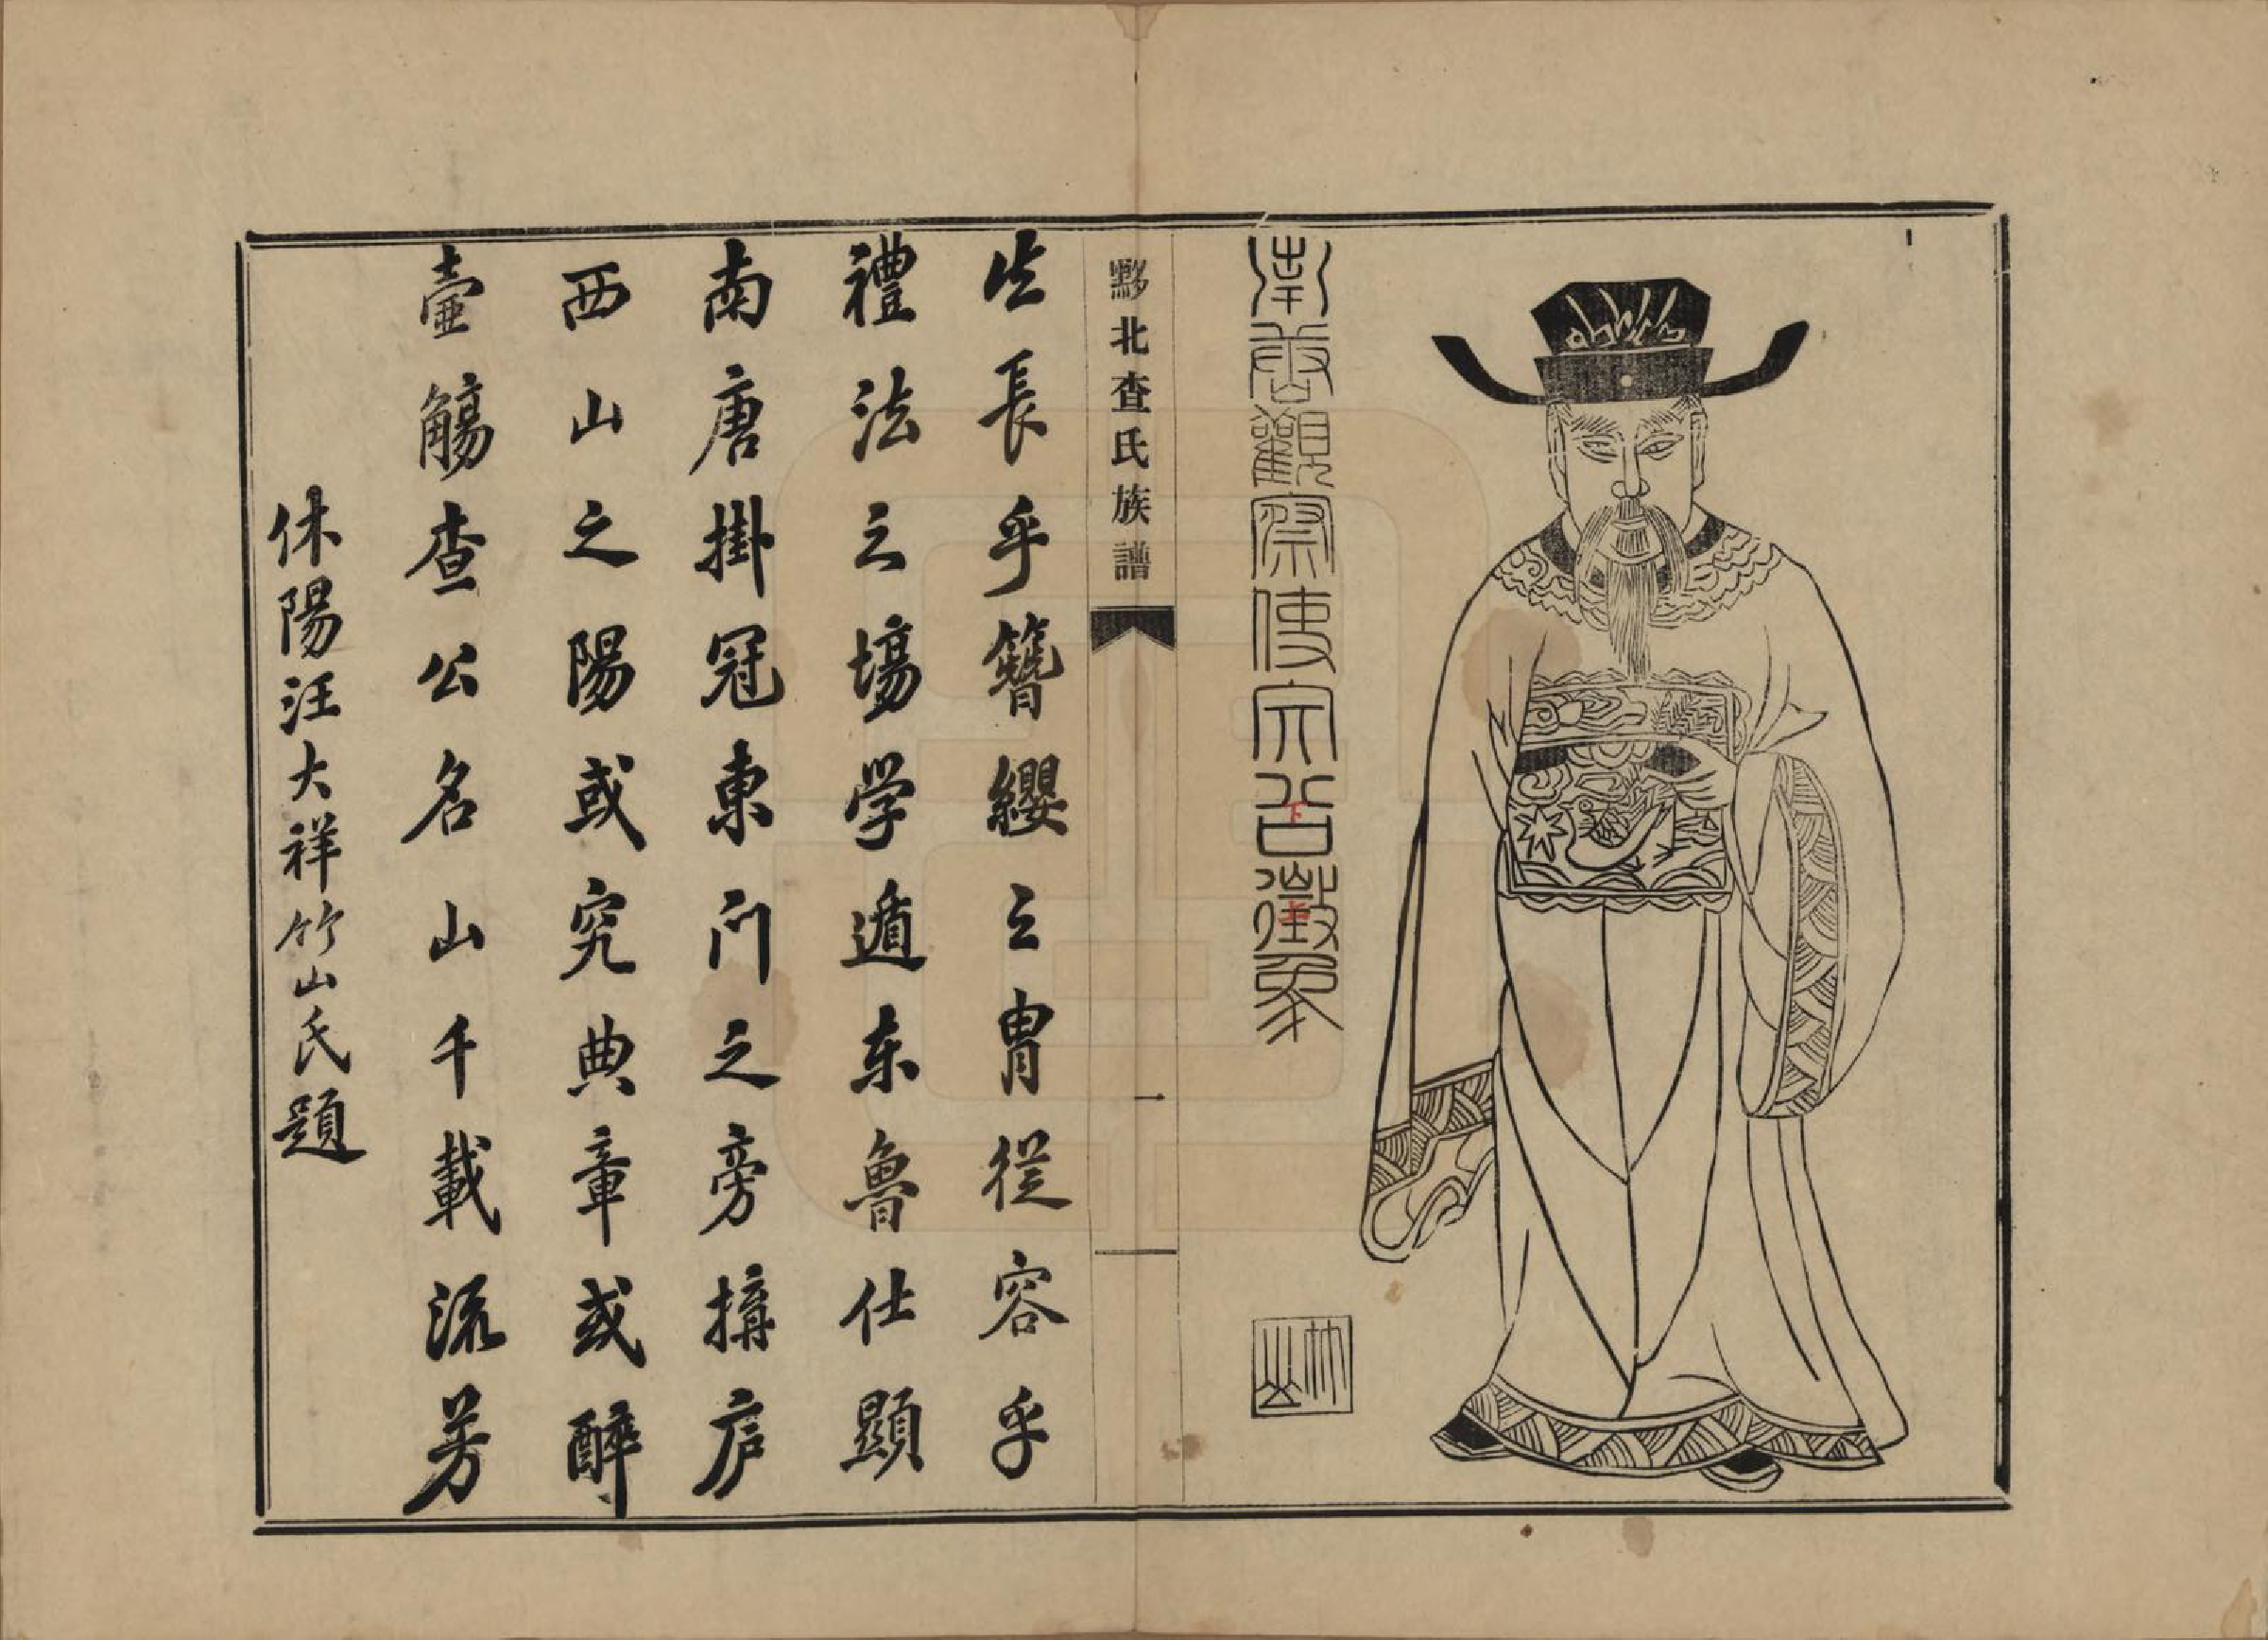 南唐觀察使宗公徵象
下
上
竹山
黟北查氏族譜
一
生長乎簪纓之胄從容乎
禮法之場学遁东魯仕顯
南唐掛冠東门之旁搆庐
西山之陽或究典章或醉
壷觴查公名山千載流芳
休陽汪大祥竹山氏題